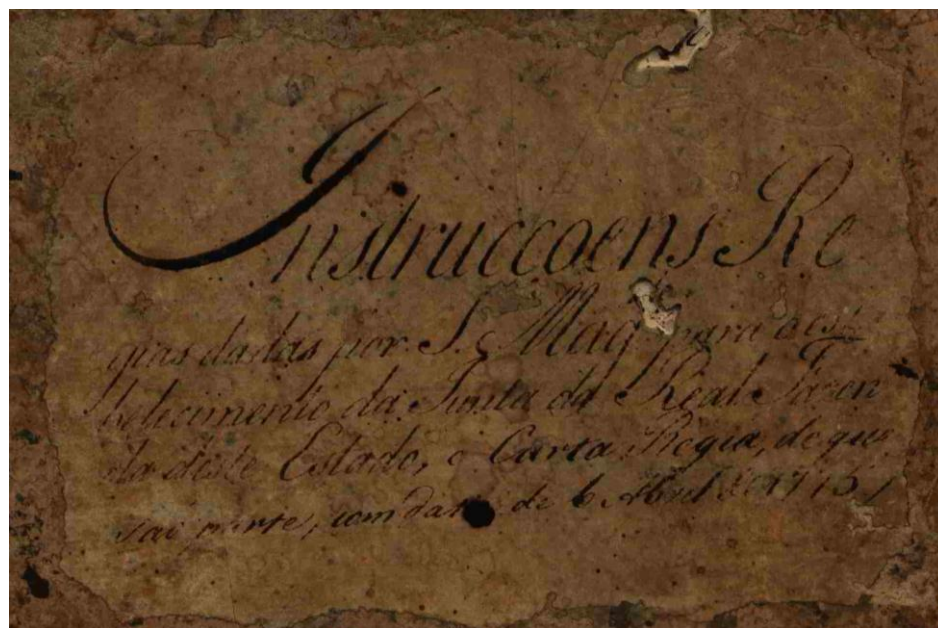 Instruccoens Re
gias dadas por S. Mag para o esta
belicimento da Junta da Real Fazen
da deste Estado, e Carta Regia, de que
faz parte, com data de 6 Abril de